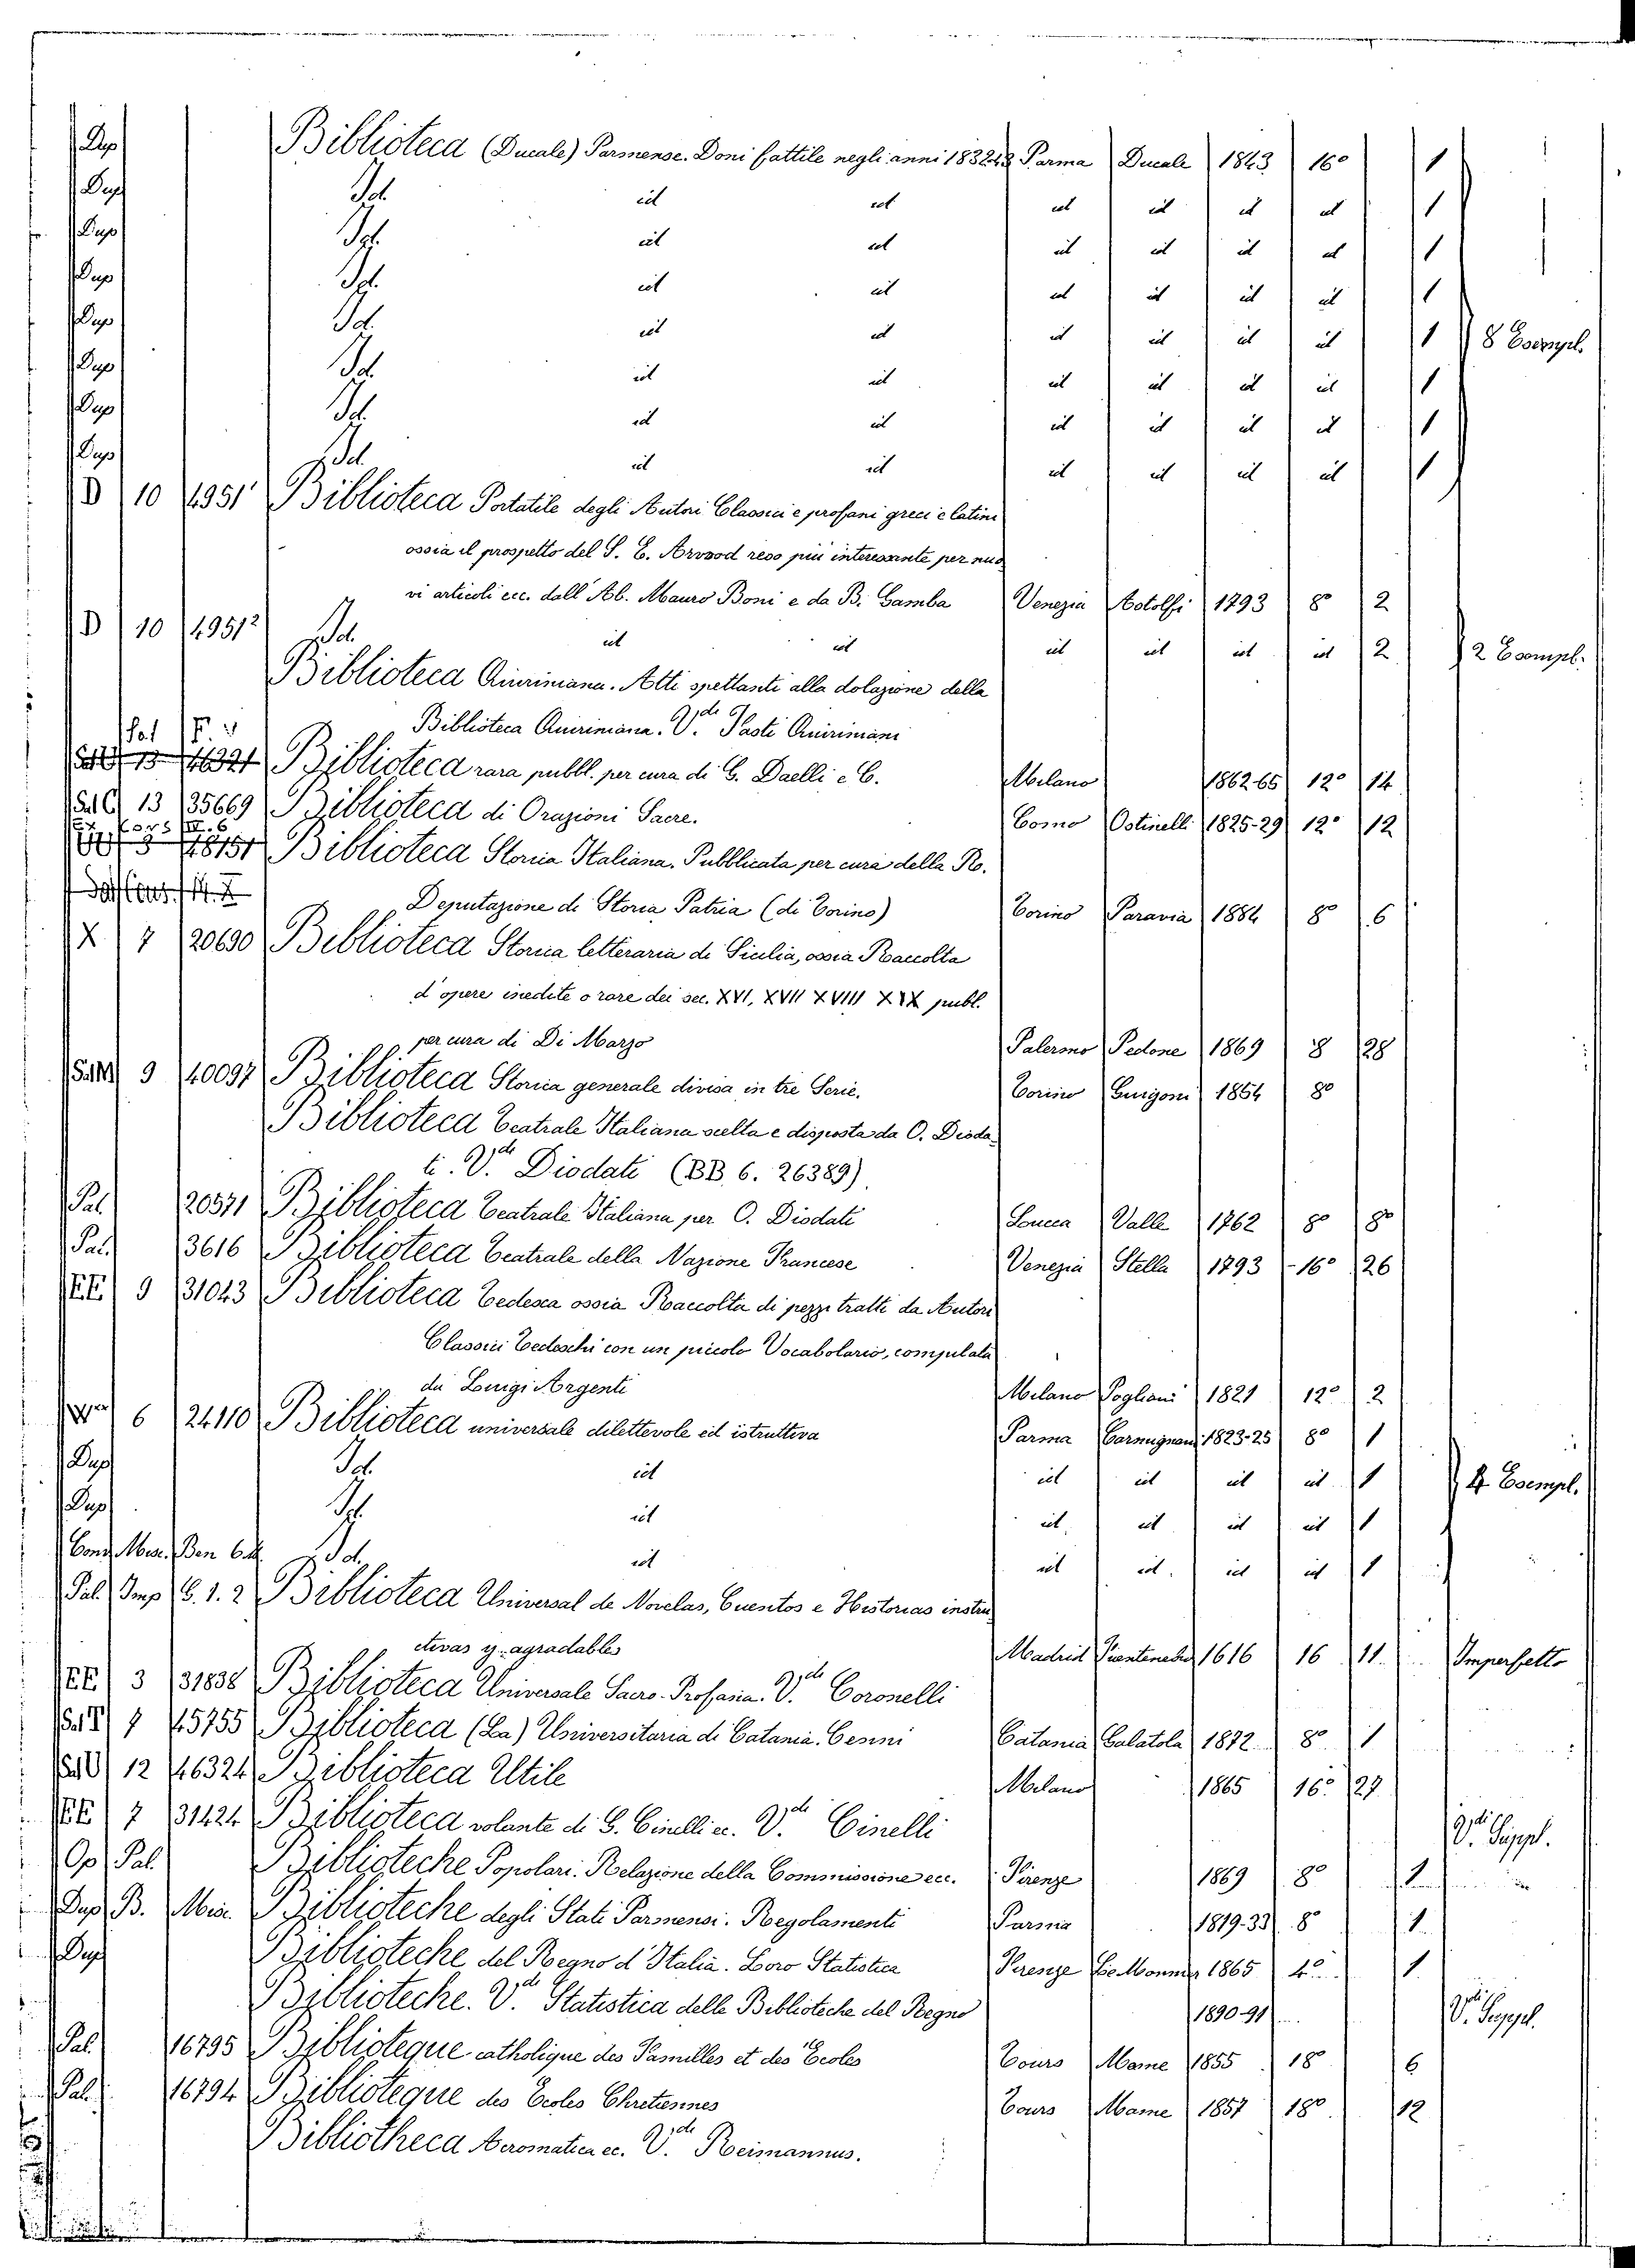 Dup Biblioteca (Ducale) Parmense. Doni fattile negli anni 1832-43 Parma Ducale 1843 16° 1
Dup Id. id id id id id id 1
Dup Id. id id id id id id 1
Dup Id. id id id id id id 1
Dup Id. id id id id id id 1 8 Esempl.
Dup Id. id id id id id id 1
Dup Id. id id id id id id 1
Dup Id. id id id id id id 1
D 10 4951¹ Biblioteca Portatile degli Autori Classici e profani greci e latini
ossia il prospetto del S. E. Arwood reso più interessante per nuo
vi articoli ecc. dall'Ab. Mauro Boni e da B. Gamba Venezia Astolfi 1793 8° 2
D 10 4951² Id. id id id id id id 2 2 Esempl.
Biblioteca Quiriniana. Atti spettanti alla dotazione della
Biblioteca Quiriniana. V.di Fasti Quiriniani
Biblioteca rara pubbl. per cura di G. Daelli e C. Milano 1862-65 12° 14
Sal C 13 35669 Biblioteca di Orazioni Sacre. Como Ostinelli 1825-29 12° 12
Biblioteca Storica Italiana. Pubblicata per cura della R.
Deputazione di Storia Patria (di Torino) Torino Paravia 1884 8° 6
X 7 20690 Biblioteca Storica letteraria di Sicilia, ossia Raccolta
d'opere inedite o rare dei sec. XVI, XVII XVIII XIX publ.
per cura di Di Marzo Palermo Pedone 1869 8 28
Sal M 9 40097 Biblioteca Storica generale divisa in tre Serie. Torino Guigoni 1854 8°
Biblioteca Teatrale Italiana scelta e disposta da O. Dioda
ti. V.di Diodati (BB. 6. 26389)
Pal. 20571 Biblioteca Teatrale Italiana per O. Diodati Lucca Valle 1762 8° 8°
Pal. 3616 Biblioteca Teatrale della Nazione Francese Venezia Stella 1793 -16° 26
EE 9 31043 Biblioteca Tedesca ossia Raccolta di pezzi tratti da Autori
Classici Tedeschi con un piccolo Vocabolario, compilata
da Luigi Argenti Milano Pogliani 1821 12° 2
6 24110 Biblioteca universale dilettevole ed istruttiva Parma Carmignani 1823-25 8° 1
Dup Id. id id id id id 1 4 Esempl.
Dup Id. id id id id id 1
Cons. Mus. Ben 6 Id. id id id id id 1
Pal. Imp C. 1. 2 Biblioteca Universal de Novelas, Cuentos e Historias instru
ctivas y agradables Madrid 1616 16 11. Imperfetto
EE 3 31838 Biblioteca Universale Sacro-Profana. V.di Coronelli
Sal T 7 45755 Biblioteca (La) Universitaria di Catania. Cenni Catania Galatola 1872 8° 1
Sal U 12 46324 Biblioteca Utile Milano 1865 16° 27
EE 7 31424 Biblioteca volante di G. Cinelli ec. V.di Cinelli V.di Suppl.
Op Pal. Biblioteche Popolari. Relazione della Commissione ecc. Firenze 1869 8° 1
Dup B. Mis. Biblioteche degli Stati Parmensi. Regolamenti Parma 1819-33 8° 1
Dup Biblioteche del Regno d'Italia. Loro Statistica Firenze Le Monnier 1865 4° 1
Biblioteche. V.di Statistica delle Biblioteche del Regno 1890-91 V.di Suppl.
Pal. 16795 Biblioteque catholique des Familles et des Ecoles Tours Mame 1855 18° 6
Pal. 16794 Biblioteque des Ecoles Chretiennes Tours Mame 1857 18° 12
Bibliotheca Acromatica ec. V.di Reimannus.